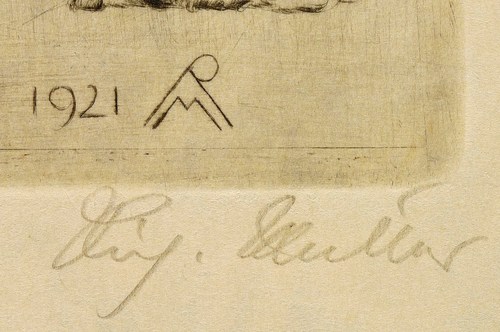 1921 RM
Rich. Müller